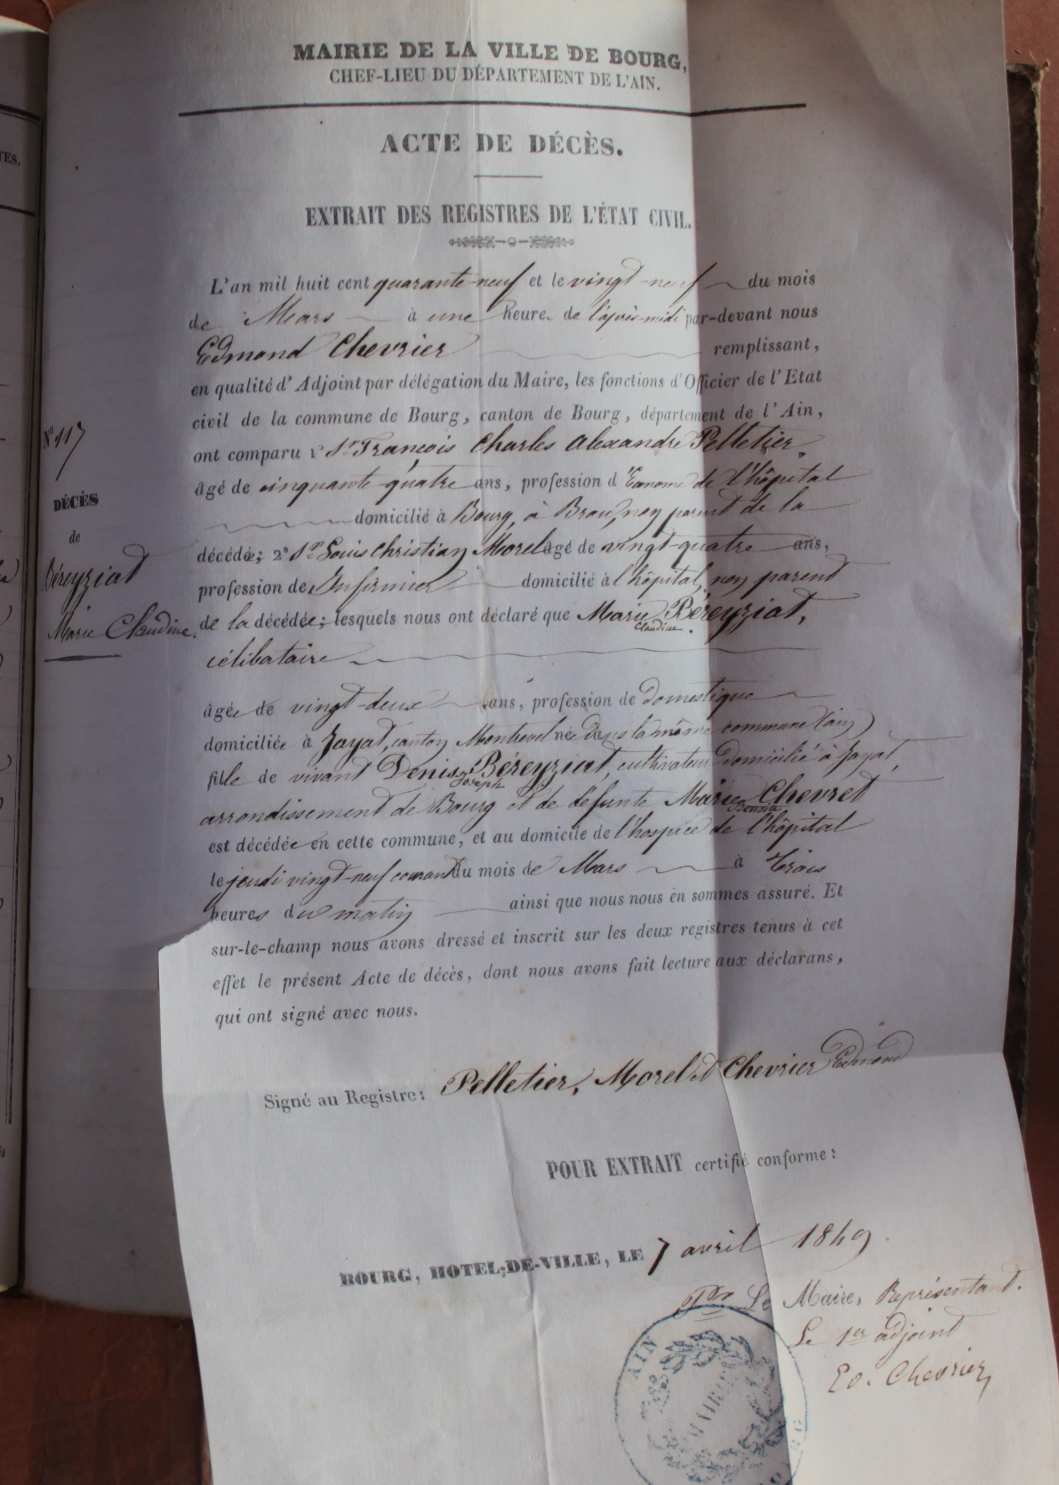 TES.
MAIRIE DE LA VILLE DE BOURG,
CHEF-LIEU DU DÉPARTEMENT DE L'AIN.
ACTE DE DÉCÈS.
EXTRAIT DES REGISTRES DE L'ÉTAT CIVIL.
L'an mil huit cent quarante-neuf et le vingt-neuf du mois
de Mars à une heure de l'après-midi par-devant nous
Edmond Chevrier remplissant,
en qualité d'Adjoint par délégation du Maire, les fonctions d'Officier de l'Etat
civil de la commune de Bourg, canton de Bourg, département de l'Ain,
N° 117
ont comparu Sr. François Charles Alexandre Pelletier,
âgé de cinquante-quatre ans, profession d'Econome de l'hôpital
DÉCÈS
domicilié à Bourg, à Brou, non parent de la
de
décédée; 2° Sr. Louis Christian Morel âgé de vingt-quatre ans,
Béreyziat
profession de Infirmier domicilié à l'hôpital, non parent
Marie Claudine.
de la décédée; lesquels nous ont déclaré que Marie Claudine Béreyziat,
célibataire
âgée de vingt-deux ans, profession de domestique
domiciliée à Jayat, canton Montrevel née dans la même commune (ain)
fille de vivant Denis Joseph Béreyziat, cultivateur domicilié à Jayat,
arrondissement de Bourg et de défunte Marie Chevret
est décédée en cette commune, et au domicile de l'hospice de l'hôpital
le jeudi vingt-neuf courant du mois de Mars à trois
heures du matin ainsi que nous nous en sommes assuré. Et
sur-le-champ nous avons dressé et inscrit sur les deux registres tenus à cet
effet le présent Acte de décès, dont nous avons fait lecture aux déclarans,
qui ont signé avec nous.
Signé au Registre: Pelletier, Morel et Chevrier Edmond
POUR EXTRAIT certifié conforme:
BOURG, HOTEL-DE-VILLE, LE 7 avril 1849.
Pr. Le Maire, Représentant.
Le 1er adjoint
Ed. Chevrier
AIN
MAIRIE